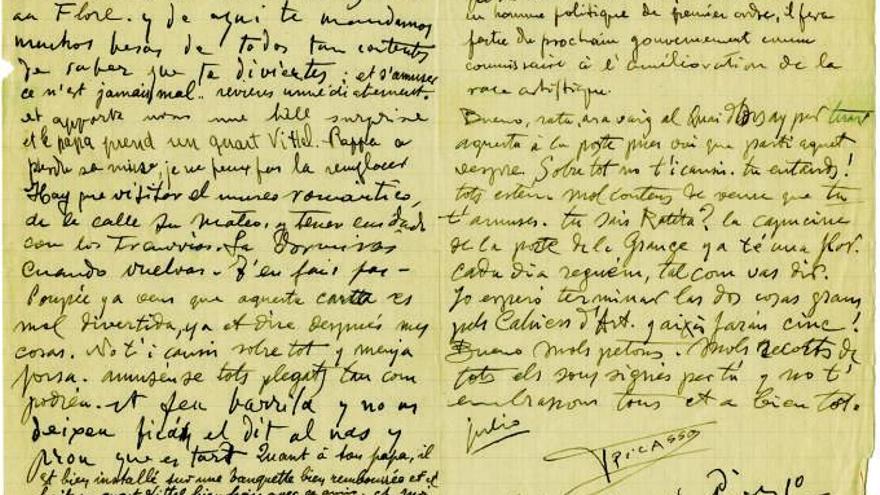 au Flore. y de aqui te mandamos
muchos besos de todos tan contents
de saber que te diviertes; et s'amuser
ce n'est jamais mal.. reviens immédiatement.
et apporte nous une belle surprise
et le papa prend un quart Vittel. Pappa a
perdu sa muse, je ne peux pas la remplacer
Hay que visitar el museo romantico,
de la calle Sn Mateo, y tener cuidado
con los tranvias. La
cuando vuelvas. T'en fais pas -
Poupée ya veus que aquesta carta es
mol divertida, ya et dire después mes
cosas. No t'i causis sobre tot y menja
forsa. amusense tots plegats tan com
podréu. et feu barrila y no us
deixen ficar el dit al nas y
prou que es tart Quant à ton papa, il
est bien installé sur une banquette bien rembourrée et il
un homme politique de premier ordre, il fera
partie du prochain gouvernement comme
commissaire à l'amélioration de la
race artistique.
Bueno, rata, ara vaig al Quai d'Orsay per tirar
aquesta à la poste pues vui que parti aquet
vespre. Sobre tot no t'i causis. tu entends!
tots estem mol contens de veure que tu
t'amuses. tu sais Ratita? la capucine
de la porte de la Grange ya té una flor.
cada dia reguém, tal com vas dir.
Jo espero terminar las dos cosas grans
pels Cahiers d'Art. y aixis farán cinc!
Bueno mols petons. Mols recorts de
tots els sous signés per tú y no t'
embrassons tous et a bien tot.
julio
PICASSO